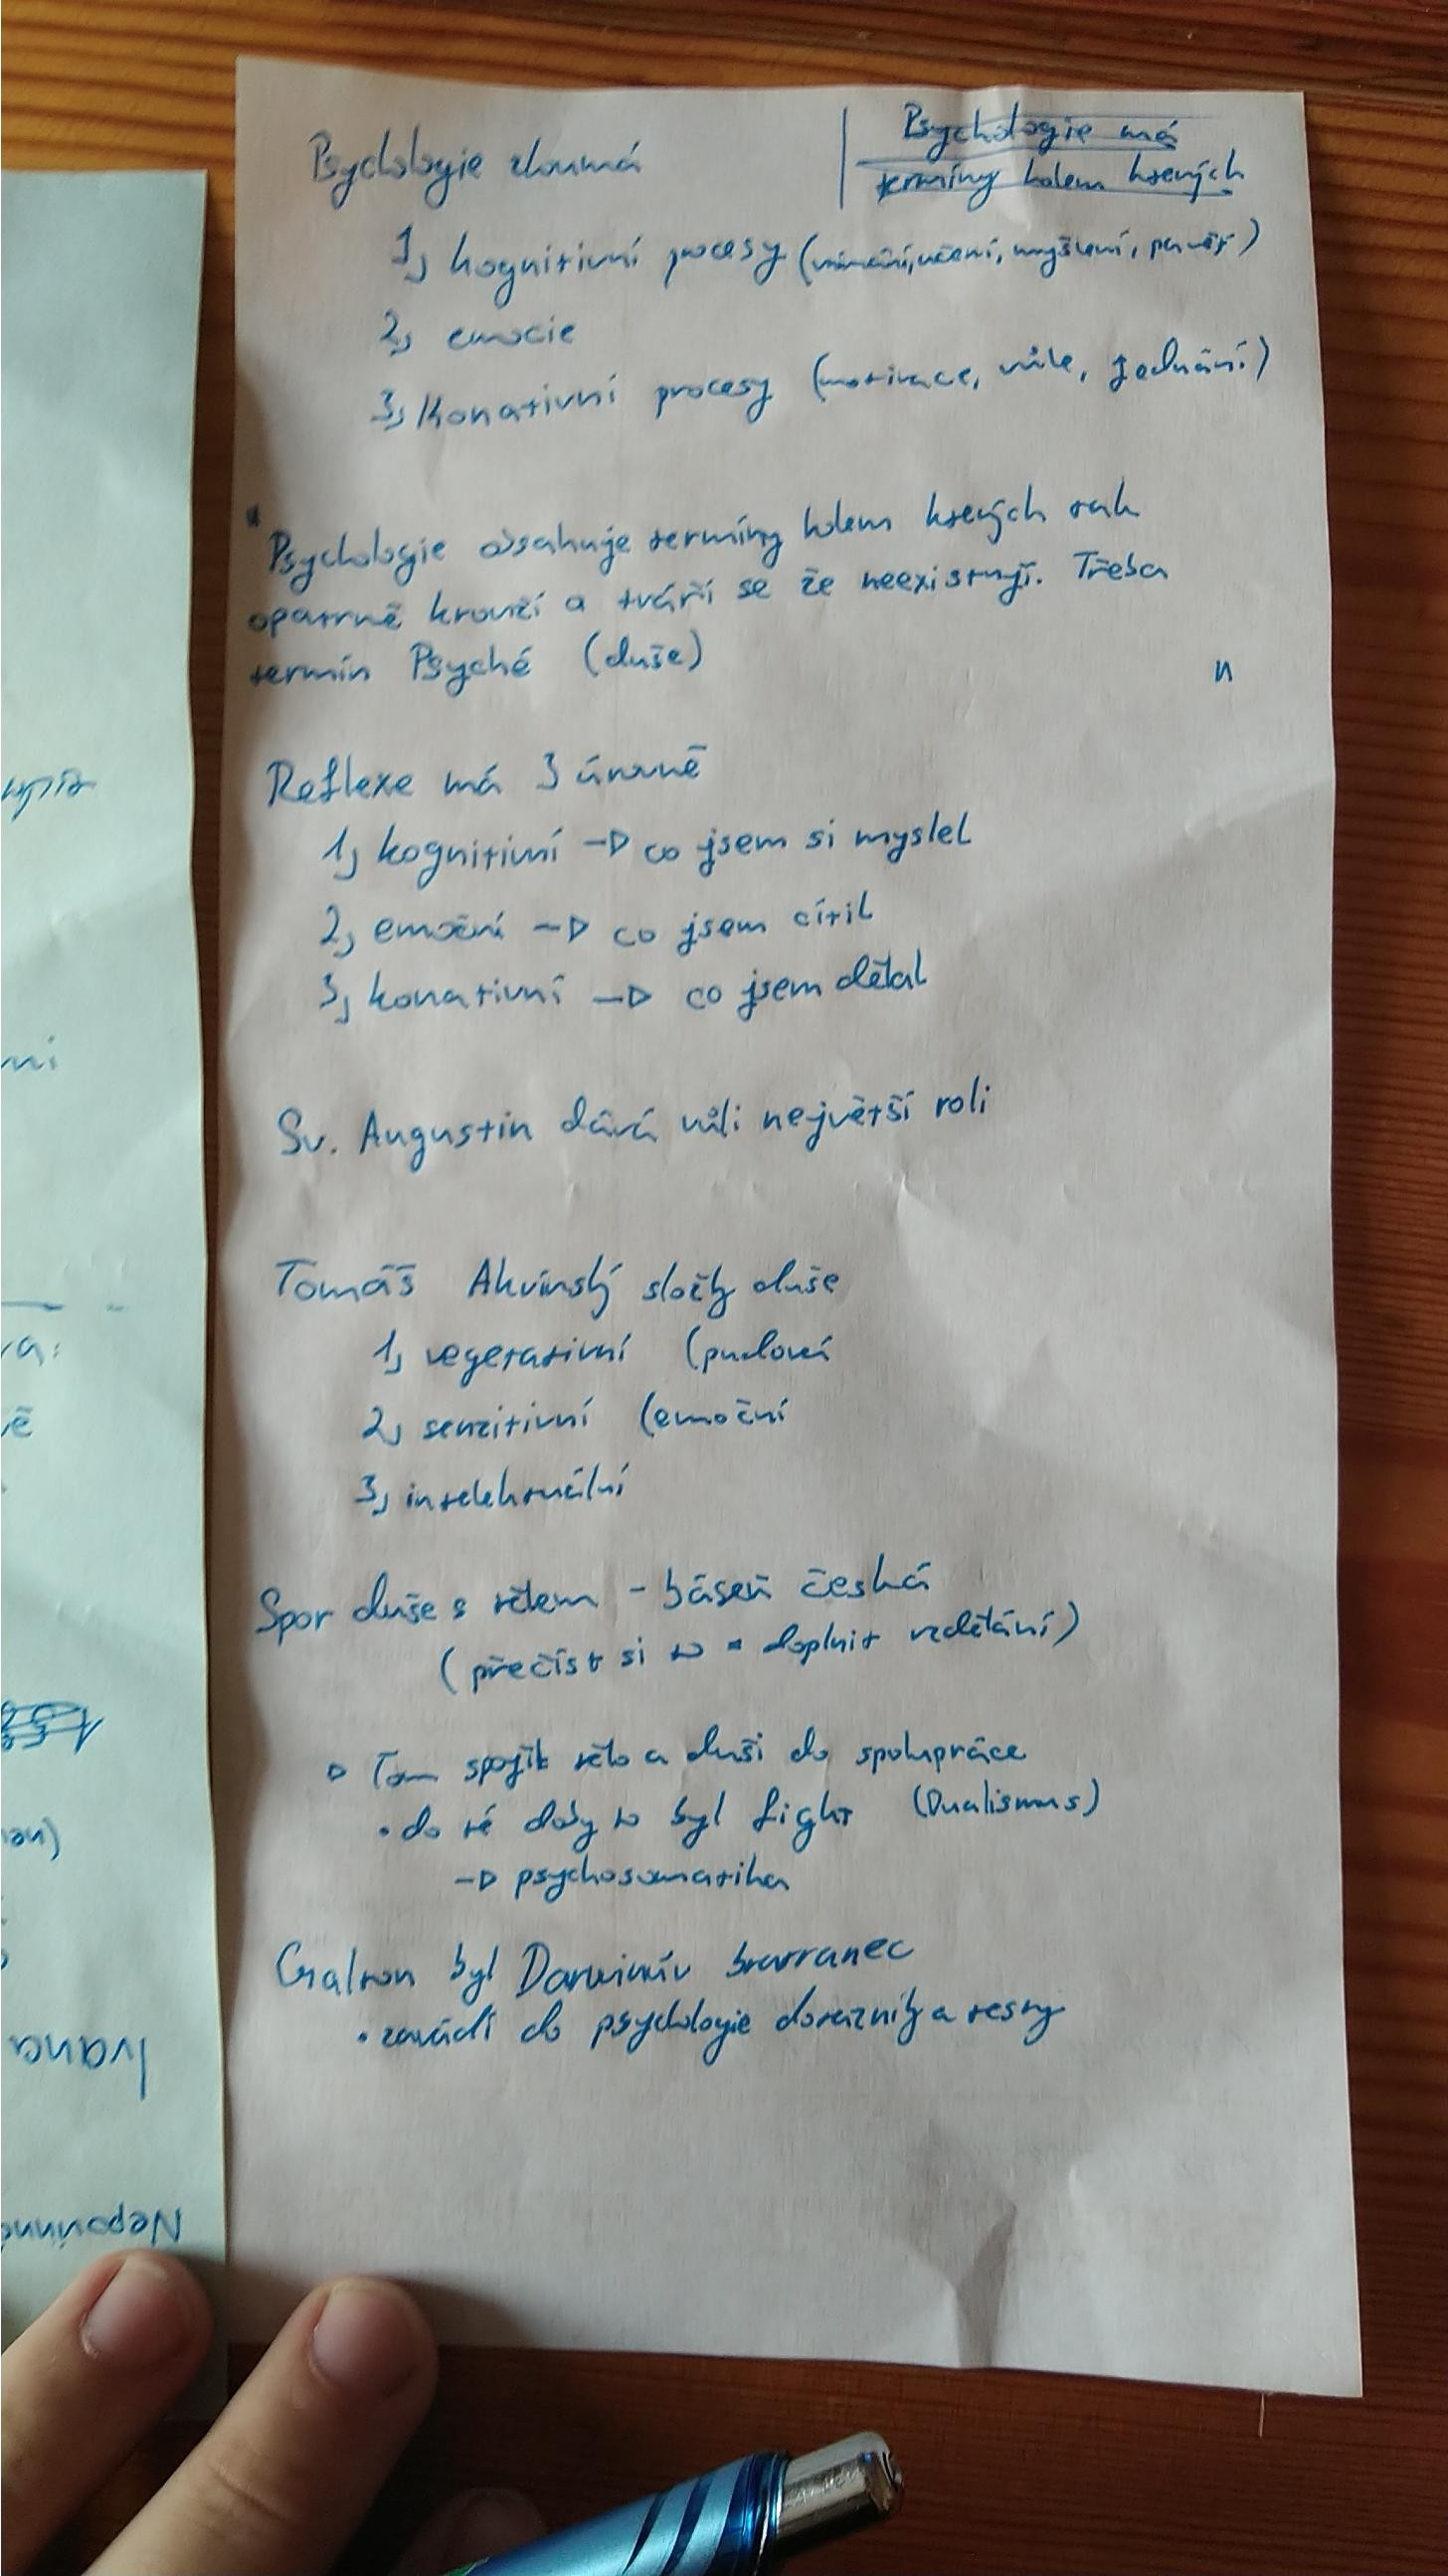 Psychologie zkoumá
Psychologie má
termíny kolem kterých
1, kognitivní procesy (vnímání, učení, myšlení, paměť)
2, emocie
3, Konativní procesy (motivace, vůle, jednání)
"Psychologie obsahuje termíny kolem kterých tak
opatrně krouží a tváří se že neexistují. Třeba
termín Psyché (duše) "
Reflexe má 3 úrovně
1, kognitivní → co jsem si myslel
2, emoční → co jsem cítil
3, konativní → co jsem dělal
Sv. Augustin dává vůli největší roli
Tomáš Akvinský složky duše
1, vegetativní (pudová
2, senzitivní (emoční
3, intelektuální
Spor duše s tělem - báseň česká
(přečíst si to = doplnit vzdělání)
Tom spojil tělo a duši do spolupráce
• do té doby to byl fight (Dualismus)
→ psychosomatika
Galton byl Darwinův bratranec
• zavádí do psychologie dotazníky a testy
ní
va:
vě
Ivana